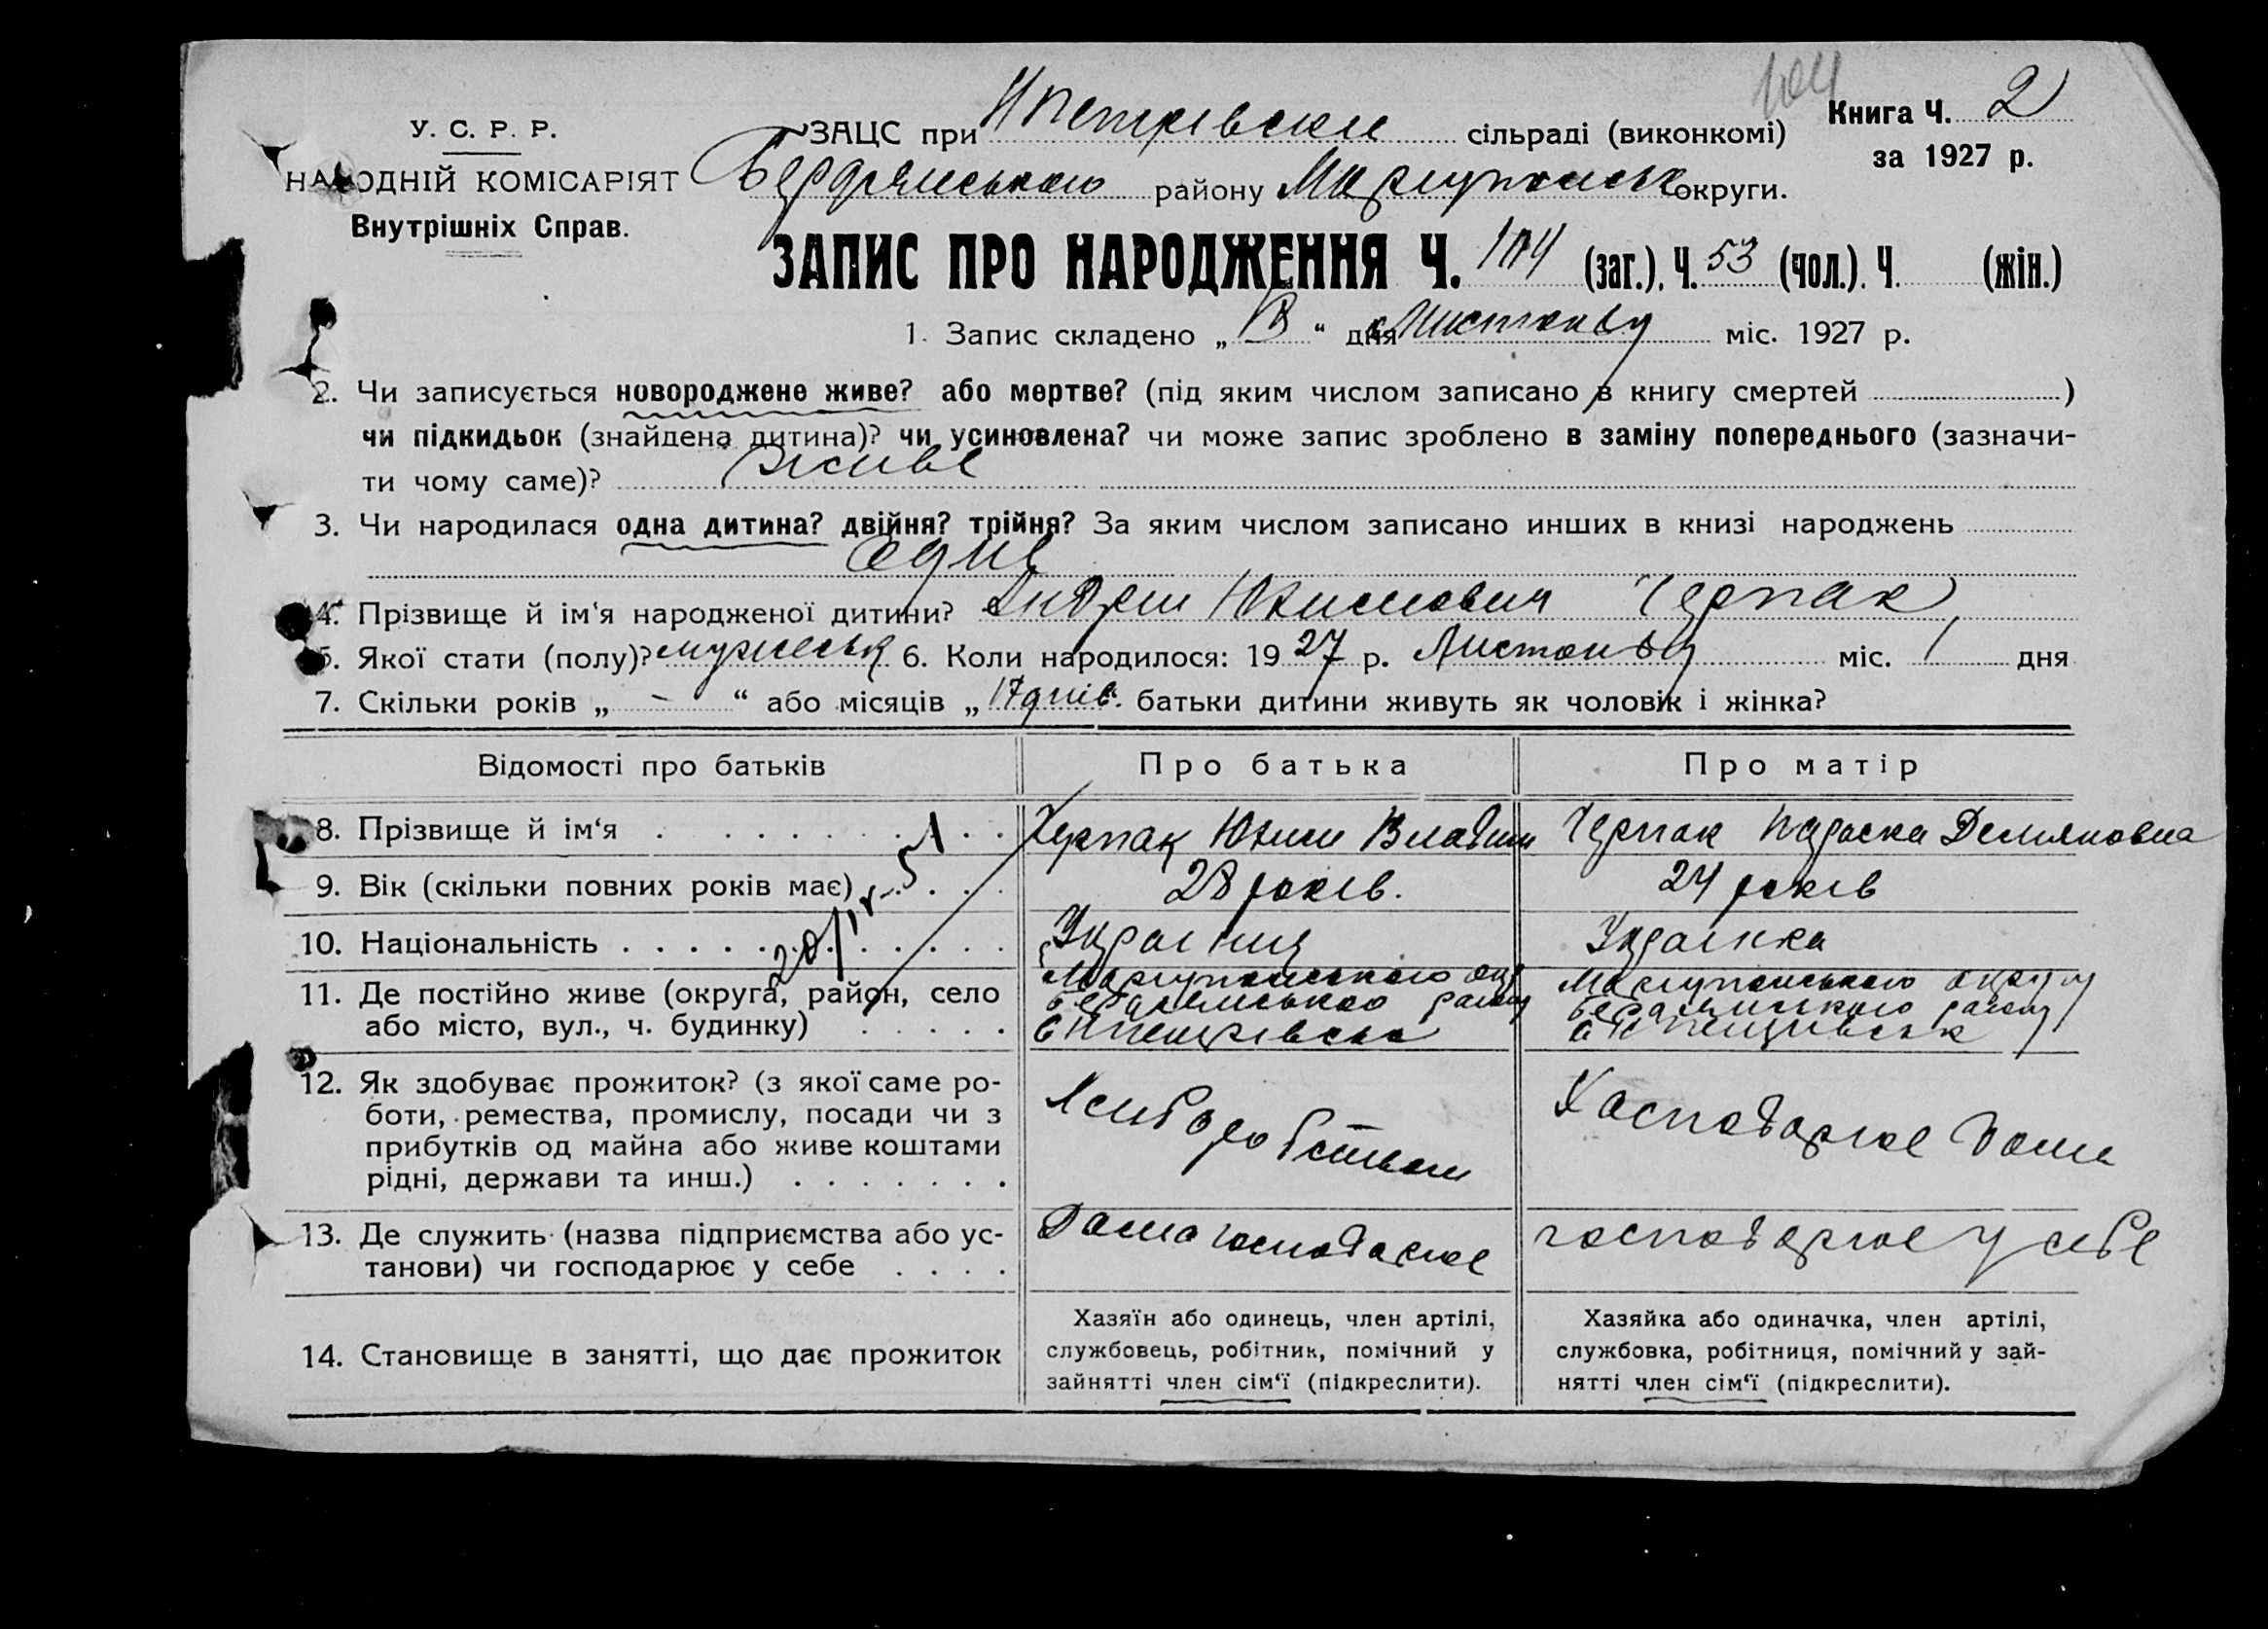 104
У. С. Р. Р.
НАРОДНІЙ КОМІСАРІЯТ
Внутрішніх Справ.
ЗАЦС при Н Петрівский сільраді (виконкомі)
Книга Ч. 2
за 1927 р.
Бердянського району Маріупольск округи.
ЗАПИС ПРО НАРОДЖЕННЯ Ч. 104 (заг.), Ч. 53 (чол.). Ч. (жін.)
1. Запис складено „ “ дня Листопаду міс. 1927 р.
2. Чи записується новороджене живе? або мертве? (під яким числом записано в книгу смертей )
чи підкидьок (знайдена дитина)? чи усиновлена? чи може запис зроблено в заміну попереднього (зазначи-
ти чому саме)? живе
3. Чи народилася одна дитина? двійня? трійня? За яким числом записано инших в книзі народжень
одне
4. Прізвище й ім‘я народженої дитини? Андрій Юхимович Черпак
5. Якої стати (полу)? мужеськ 6. Коли народилося: 1927 р. Листопаду міс. 1 дня
7. Скільки років „ - “ або місяців „ 17 днів “ батьки дитини живуть як чоловік і жінка?
Відомості про батьків Про батька Про матір
8. Прізвище й ім‘я Черпак Юхим Владим Черпак Параска Демяновна
9. Вік (скільки повних років має) 28 років. 24 років
10. Національність Украінец Украінка
11. Де постійно живе (округа, район, село
або місто, вул., ч. будинку)
Маріупольского окр
Бердянського району
с Н Петрівськ
Маріупольського округу
Бердянського району
с Н Петрівськ
12. Як здобуває прожиток? (з якої саме ро-
боти, ремества, промислу, посади чи з
прибутків од майна або живе коштами
рідні, держави та инш.)
Хліборобством
Хасподарює дома
13. Де служить (назва підприємства або ус-
танови) чи господарює у себе
Дома господарює
господарює у себе
14. Становище в занятті, що дає прожиток
Хазяїн або одинець, член артілі,
службовець, робітник, помічний у
зайнятті член сім‘ї (підкреслити).
Хазяйка або одиначка, член артілі,
службовка, робітниця, помічний у зай-
нятті член сім‘ї (підкреслити).